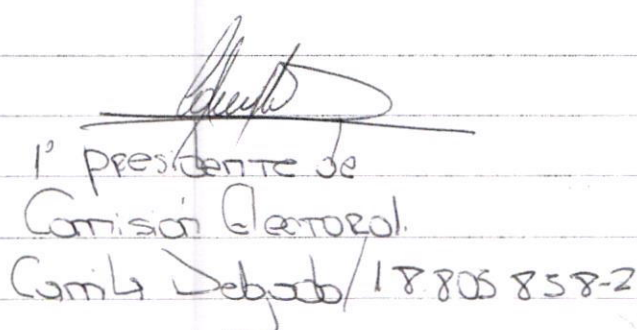 1° presidente de
Comisión Electoral.
Camila Delgado/18805858-2